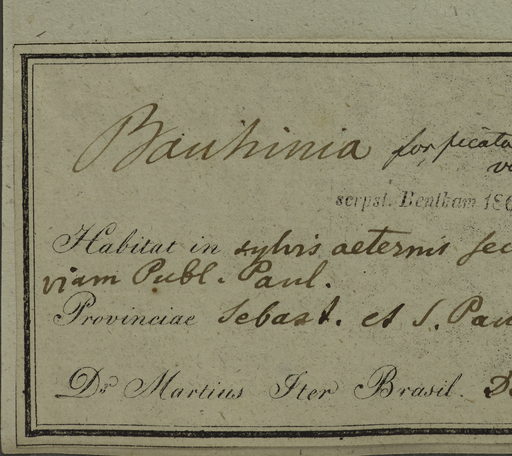 Bauhinia forficata
serpst. Bentham 186
Habitat in sylvis aeternis sec
viam Publ. Paul.
Provinciae Sebast. et S. Pau
Dr Martius Iter Brasil. D